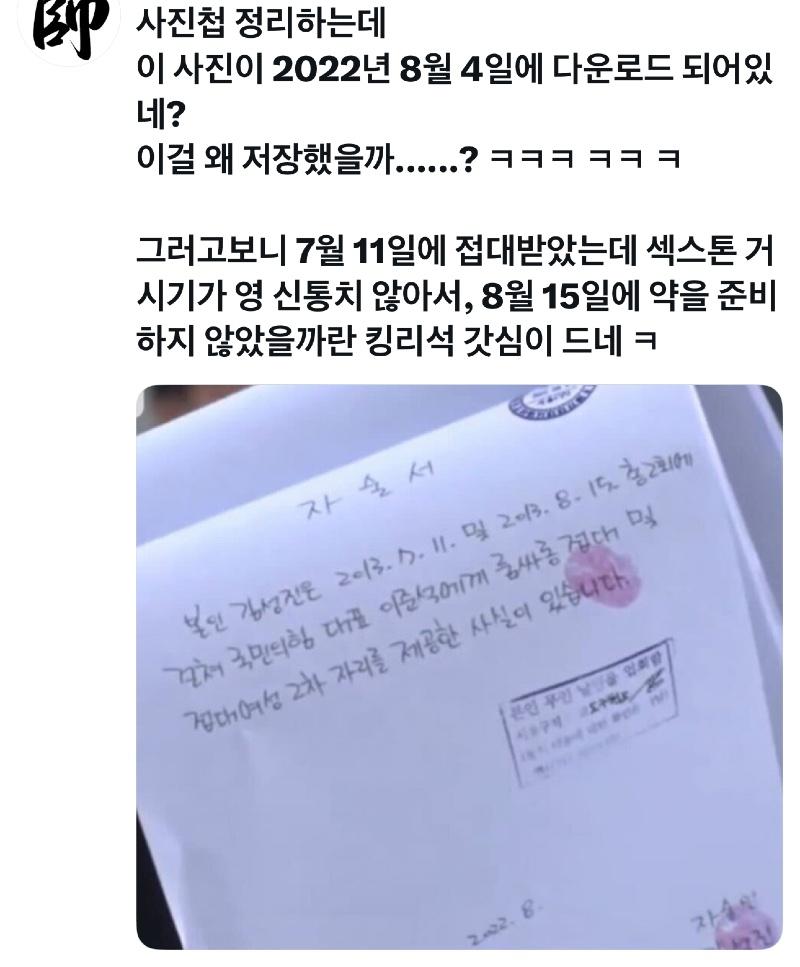 帥
사진첩 정리하는데
이 사진이 2022년 8월 4일에 다운로드 되어있
네?
이걸 왜 저장했을까......? ㅋㅋㅋ ㅋㅋ ㅋ
그러고보니 7월 11일에 접대받았는데 섹스톤 거
시기가 영 신통치 않아서, 8월 15일에 약을 준비
하지 않았을까란 킹리석 갓심이 드네 ㅋ
자 술 서
본인 김성진은 2013.7.11. 및 2013.8.15. 총2회에
걸쳐 국민의힘 대표 이준석에게 룸싸롱 접대 및
접대여성 2차 자리를 제공한 사실이 있습니다.
본인
2022. 8.
자술인